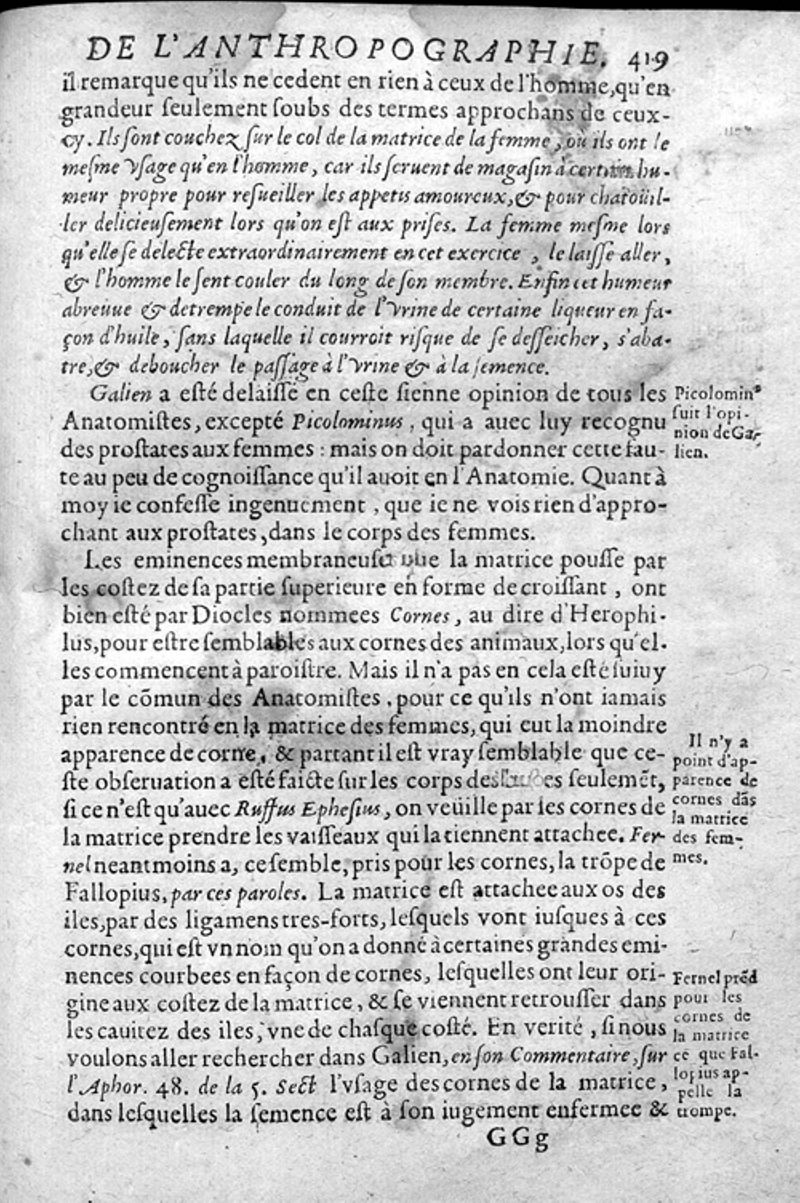 DE L'ANTHROPOGRAPHIE. 419
il remarque qu'ils ne cedent en rien à ceux de l'homme, qu'en
grandeur ſeulement ſoubs des termes approchans de ceux-
cy. Ils ſont couchez ſur le col de la matrice de la femme, où ils ont le
meſme vſage qu'en l'homme, car ils ſeruent de magaſin à certain hu-
meur propre pour reſueiller les appetis amoureux, & pour chatoüil-
ler delicieuſement lors qu'on eſt aux priſes. La femme meſme lors
qu'elle ſe delecte extraordinairement en cet exercice, le laiſſe aller,
& l'homme le ſent couler du long de ſon membre. Enfin cet humeur
abreuue & detrempe le conduit de l'vrine de certaine liqueur en fa-
çon d'huile, ſans laquelle il courroit riſque de ſe deſſeicher, s'aba-
tre, & deboucher le paſſage à l'vrine & à la ſemence.
Galien a eſté delaiſſé en ceſte ſienne opinion de tous les
Anatomiſtes, excepté Picolominus, qui a auec luy recognu
des proſtates aux femmes : mais on doit pardonner cette fau-
te au peu de cognoiſſance qu'il auoit en l'Anatomie. Quant à
moy ie confeſſe ingenuement, que ie ne vois rien d'appro-
chant aux proſtates, dans le corps des femmes.
Picolominꝰ
ſuit l'opi-
nion de Ga-
lien.
Les eminences membraneuſes que la matrice pouſſe par
les coſtez de ſa partie ſuperieure en forme de croiſſant, ont
bien eſté par Diocles nommees Cornes, au dire d'Herophi-
lus, pour eſtre ſemblables aux cornes des animaux, lors qu'el-
les commencent à paroiſtre. Mais il n'a pas en cela eſté ſuiuy
par le cõmun des Anatomiſtes, pour ce qu'ils n'ont iamais
rien rencontré en la matrice des femmes, qui eut la moindre
apparence de corne, & partant il eſt vray ſemblable que ce-
ſte obſeruation a eſté faicte ſur les corps des ſeulemẽt,
ſi ce n'eſt qu'auec Ruffus Epheſius, on veüille par les cornes de
la matrice prendre les vaiſſeaux qui la tiennent attachee. Fer-
nel neantmoins a, ce ſemble, pris pour les cornes, la trõpe de
Fallopius, par ces paroles. La matrice eſt attachee aux os des
iles, par des ligamens tres-forts, leſquels vont iuſques à ces
cornes, qui eſt vn nom qu'on a donné à certaines grandes emi-
nences courbees en façon de cornes, leſquelles ont leur ori-
gine aux coſtez de la matrice, & ſe viennent retrouſſer dans
les cauitez des iles, vne de chaſque coſté. En verité, ſi nous
voulons aller rechercher dans Galien, en ſon Commentaire, ſur
l'Aphor. 48. de la 5. Sect l'vſage des cornes de la matrice,
dans leſquelles la ſemence eſt à ſon iugement enfermee &
Il n'y a
point d'ap-
parence de
cornes dãs
la matrice
des fem-
mes.
Fernel prẽd
pour les
cornes de
la matrice
ce que Fal-
lopius ap-
pelle la
trompe.
GGg